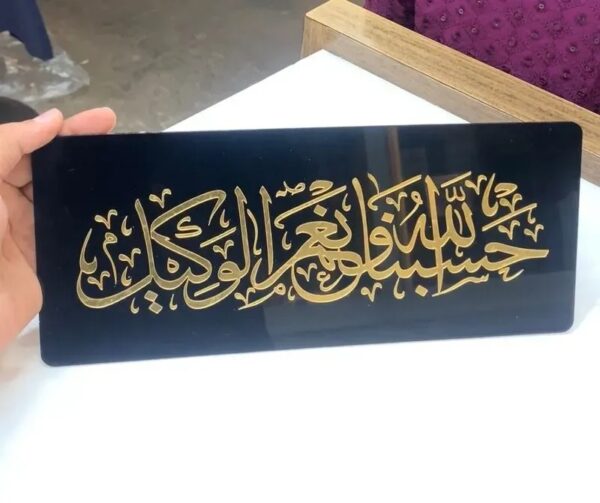 حَسْبُنَا اللّٰهُ وَنِعْمَ الْوَكِيْل